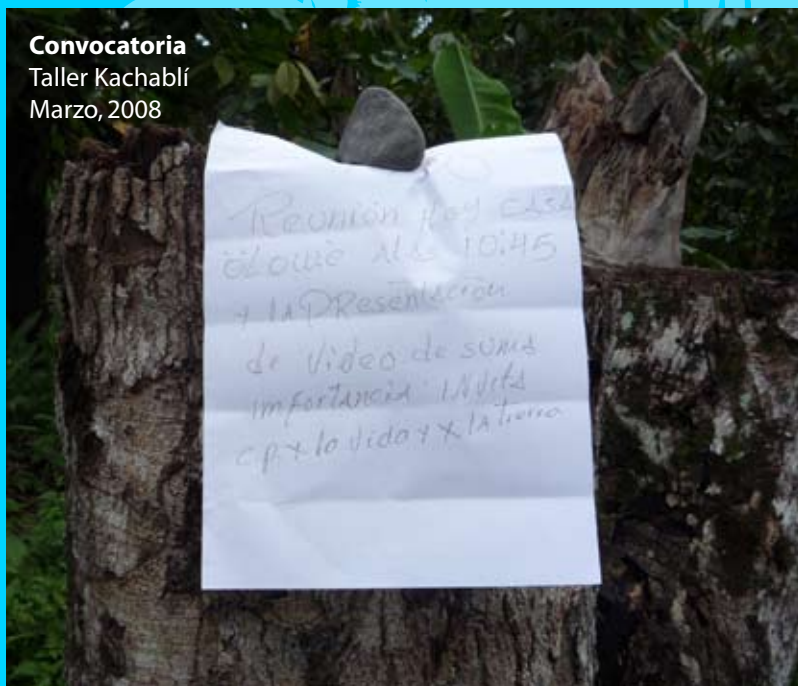 Convocatoria
Taller Kachablí
Marzo, 2008
Reunión Hoy CASA
A las 10:45
y LA PResentación
de Video de suma
importancia INVita
CP x la vida y x LA tierra